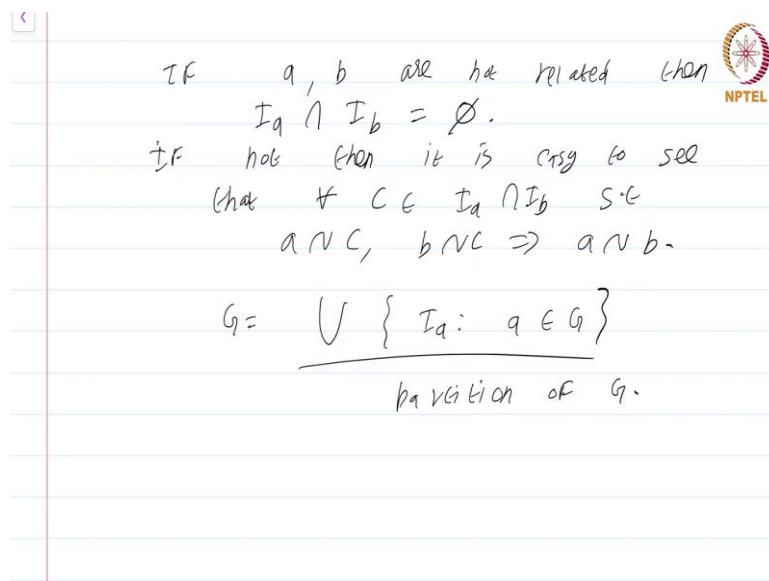 If a, b are not related then
NPTEL
I_a ∩ I_b = ∅.
If not then it is easy to see
that ∀ c ∈ I_a ∩ I_b s.t
a ~ c, b ~ c => a ~ b.
G = ∪ { I_a : a ∈ G }
partition of G.